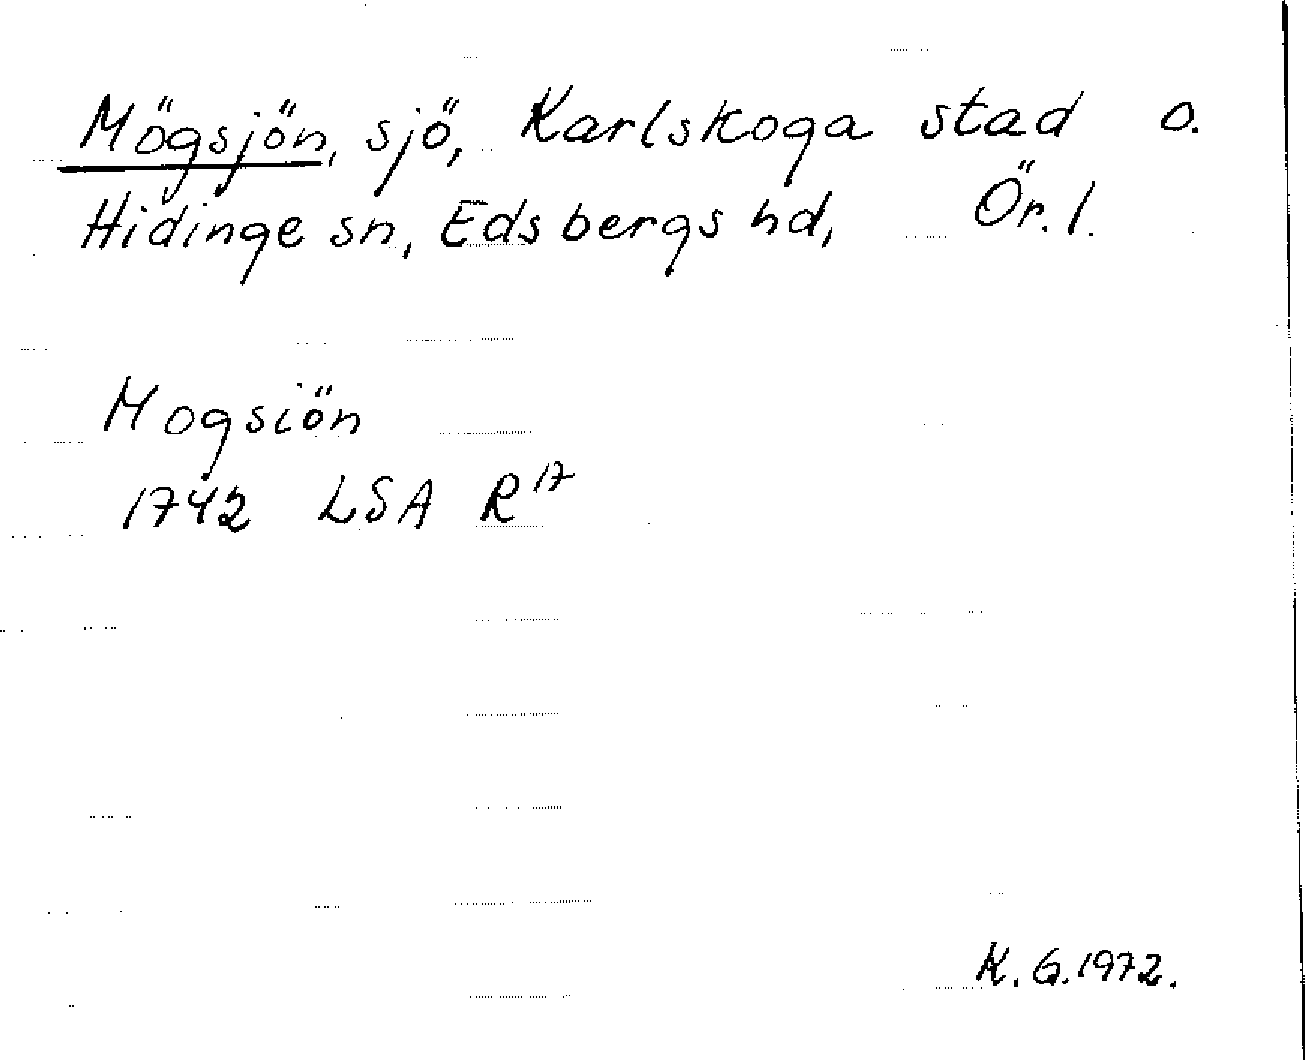 Mögsjön, sjö, Karlskoga stad o.
Hidinge sn, Edsbergs hd, Ör. l.
Mogsiön
1742 LSA R 17
K. G. 1972.